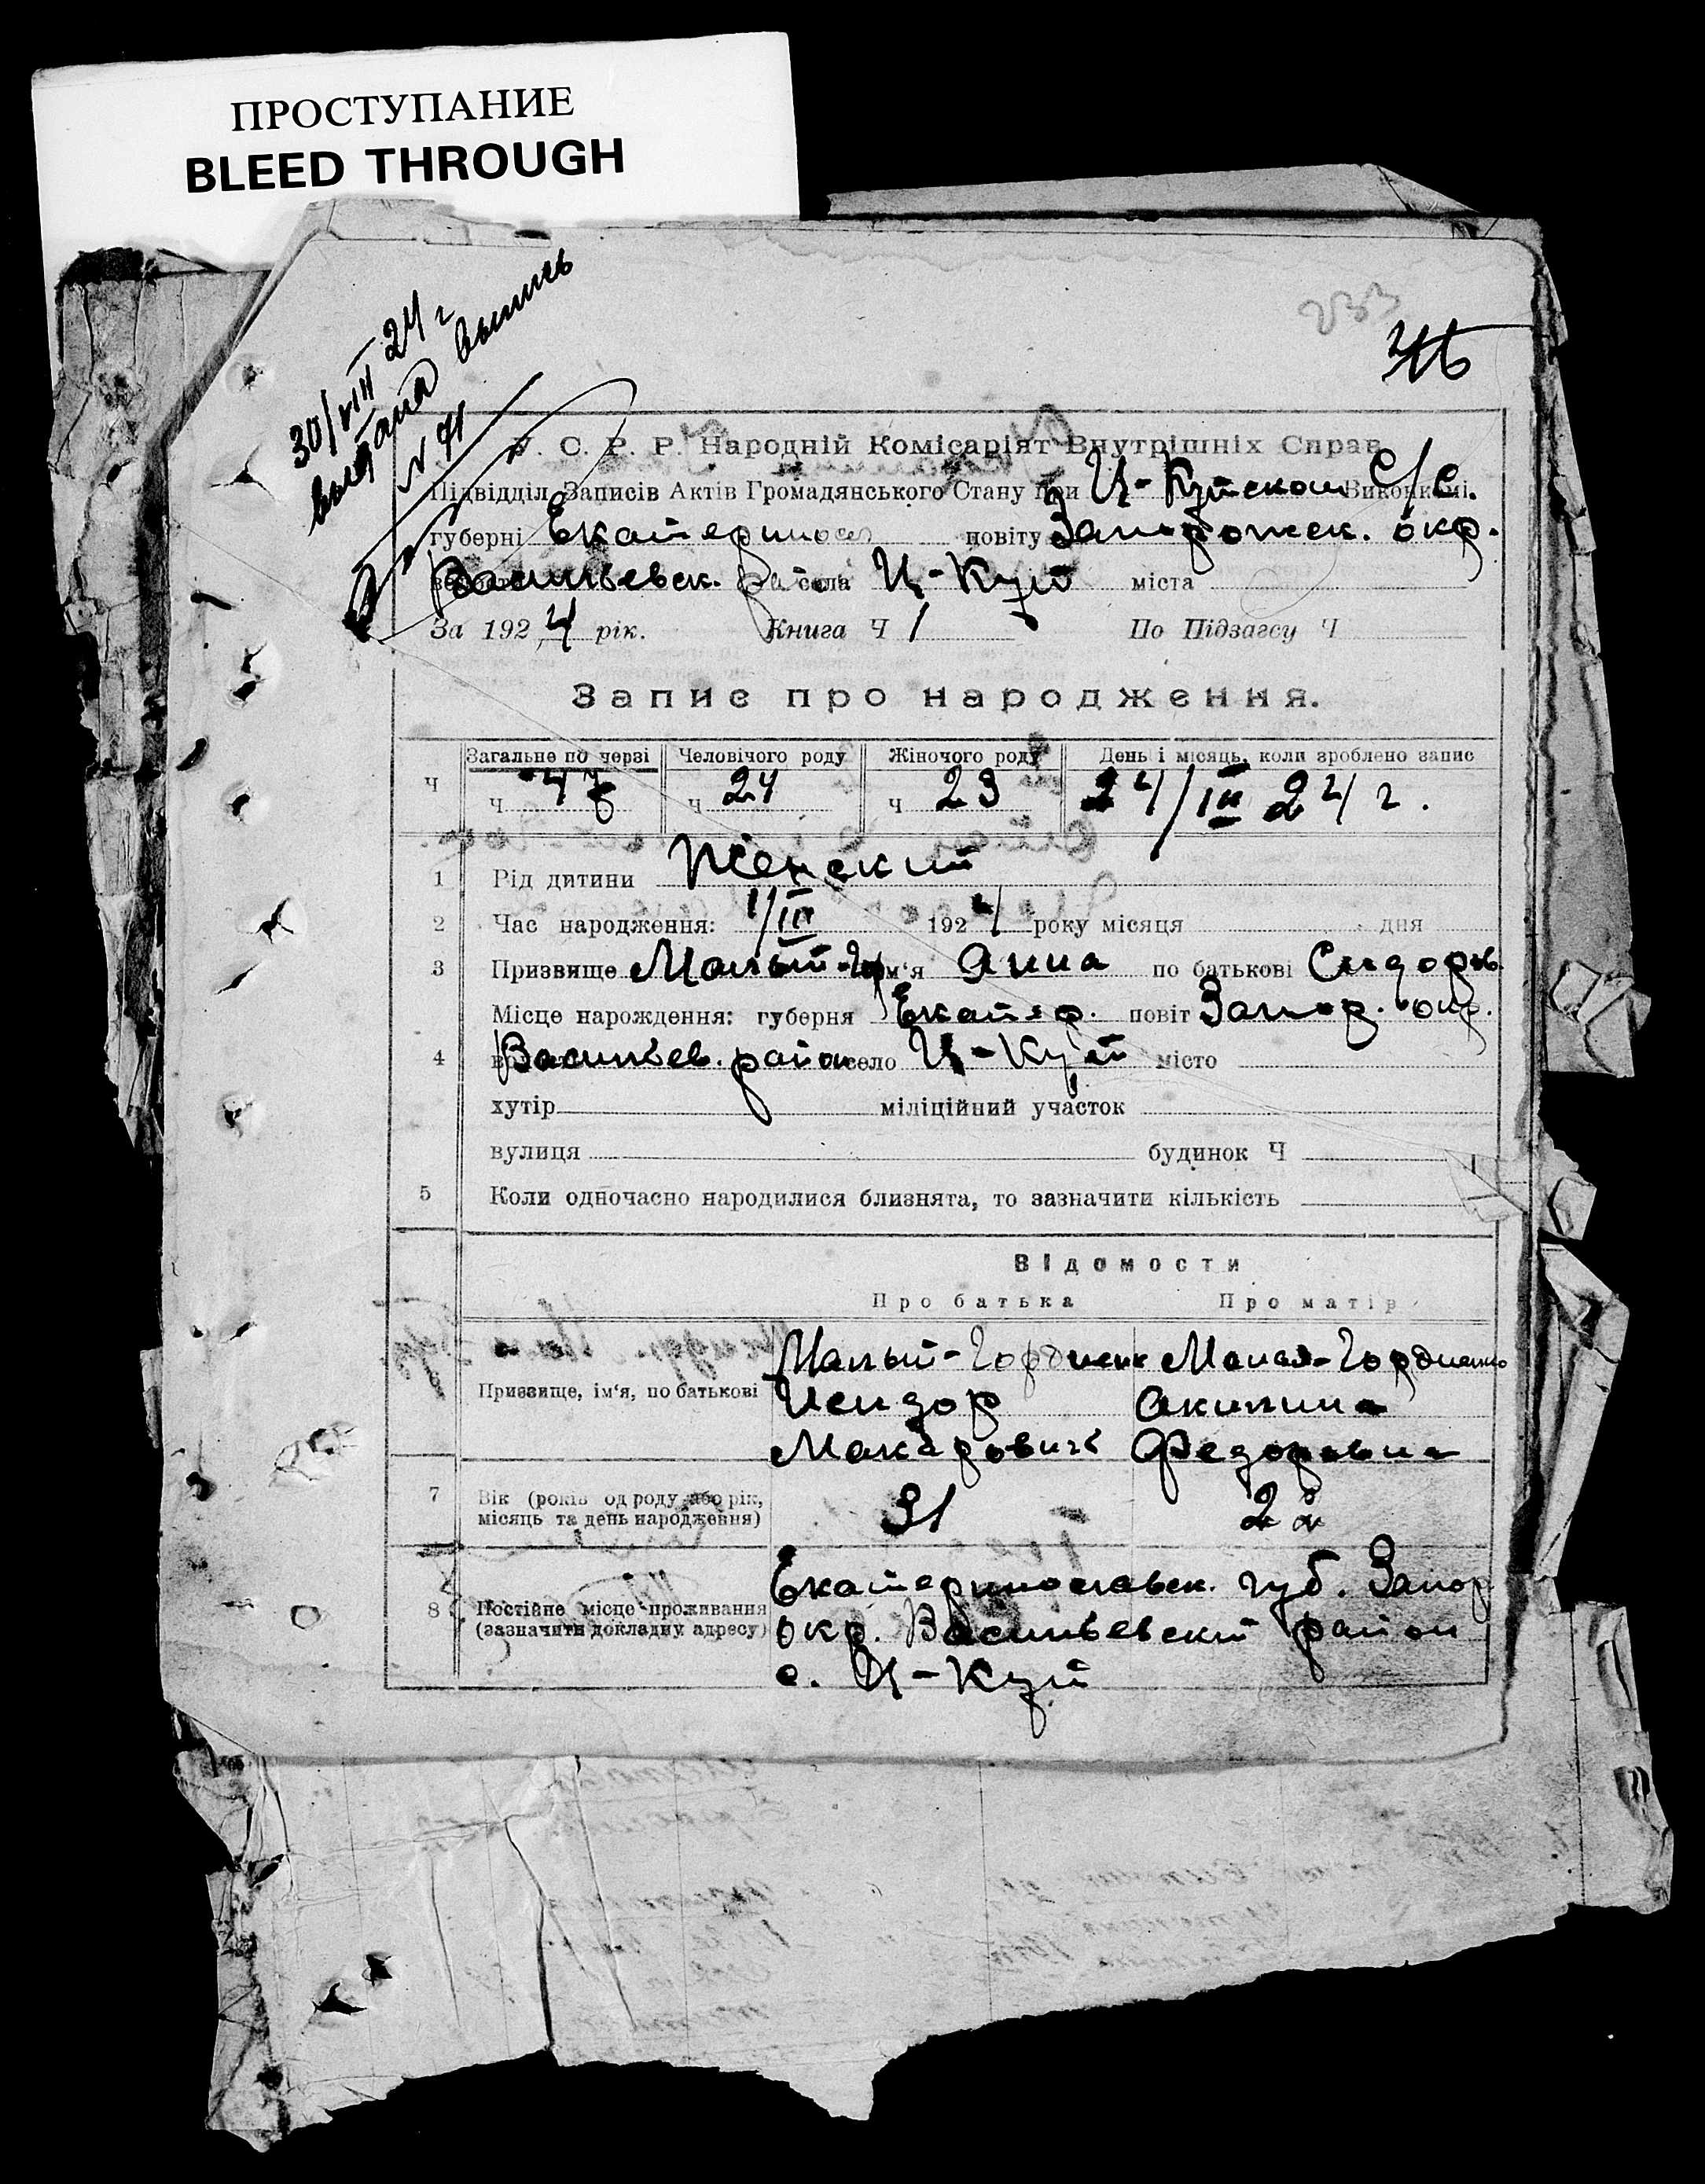 ПРОСТУПАНИЕ
BLEED THROUGH
233
30/VIII 24 г
выдана выпись
N 71
У. С. Р. Р. Народній Комісаріят Внутрішніх Справ
Підвідділ Записів Актів Громадянського Стану при Ц-Куйском С/С. Виконкомі
губерні Екатеринос повіту Запорожск. окр.
Васильевск. района села Ц-Куй міста
За 1924 рік. Книга Ч 1 По Підзагсу Ч
Запис про народження.
Загальне по черзі Человічого роду Жіночого роду День і місяць, коли зроблено запис
Ч ч 47 ч 24 ч 23 24/III 24 г.
1 Рід дитини Женский
2 Час народження: 1/III 1924 року місяця дня
3 Призвище Малый-Гор ім'я Анна по батькові Сидоров
Місце нарождення: губерня Екатер. повіт Запор. окр.
4 Васильев. район село Ц-Куй місто
хутір міліційний участок
вулиця будинок Ч
5 Коли одночасно народилися близнята, то зазначити кількість
Відомости
Про батька Про матір
Малый-Гордиенк Малая-Гордиенко
6 Призвище, ім'я, по батькові Исидор Акилина
Макарович Федоровна
7 Вік (років од роду або рік, місяць та день народження) 31 22
Екатеринославск. губ. Запор.
8 Постійне місце проживання (зазначити докладну адресу) окр. Васильевский район
с. Ц-Куй